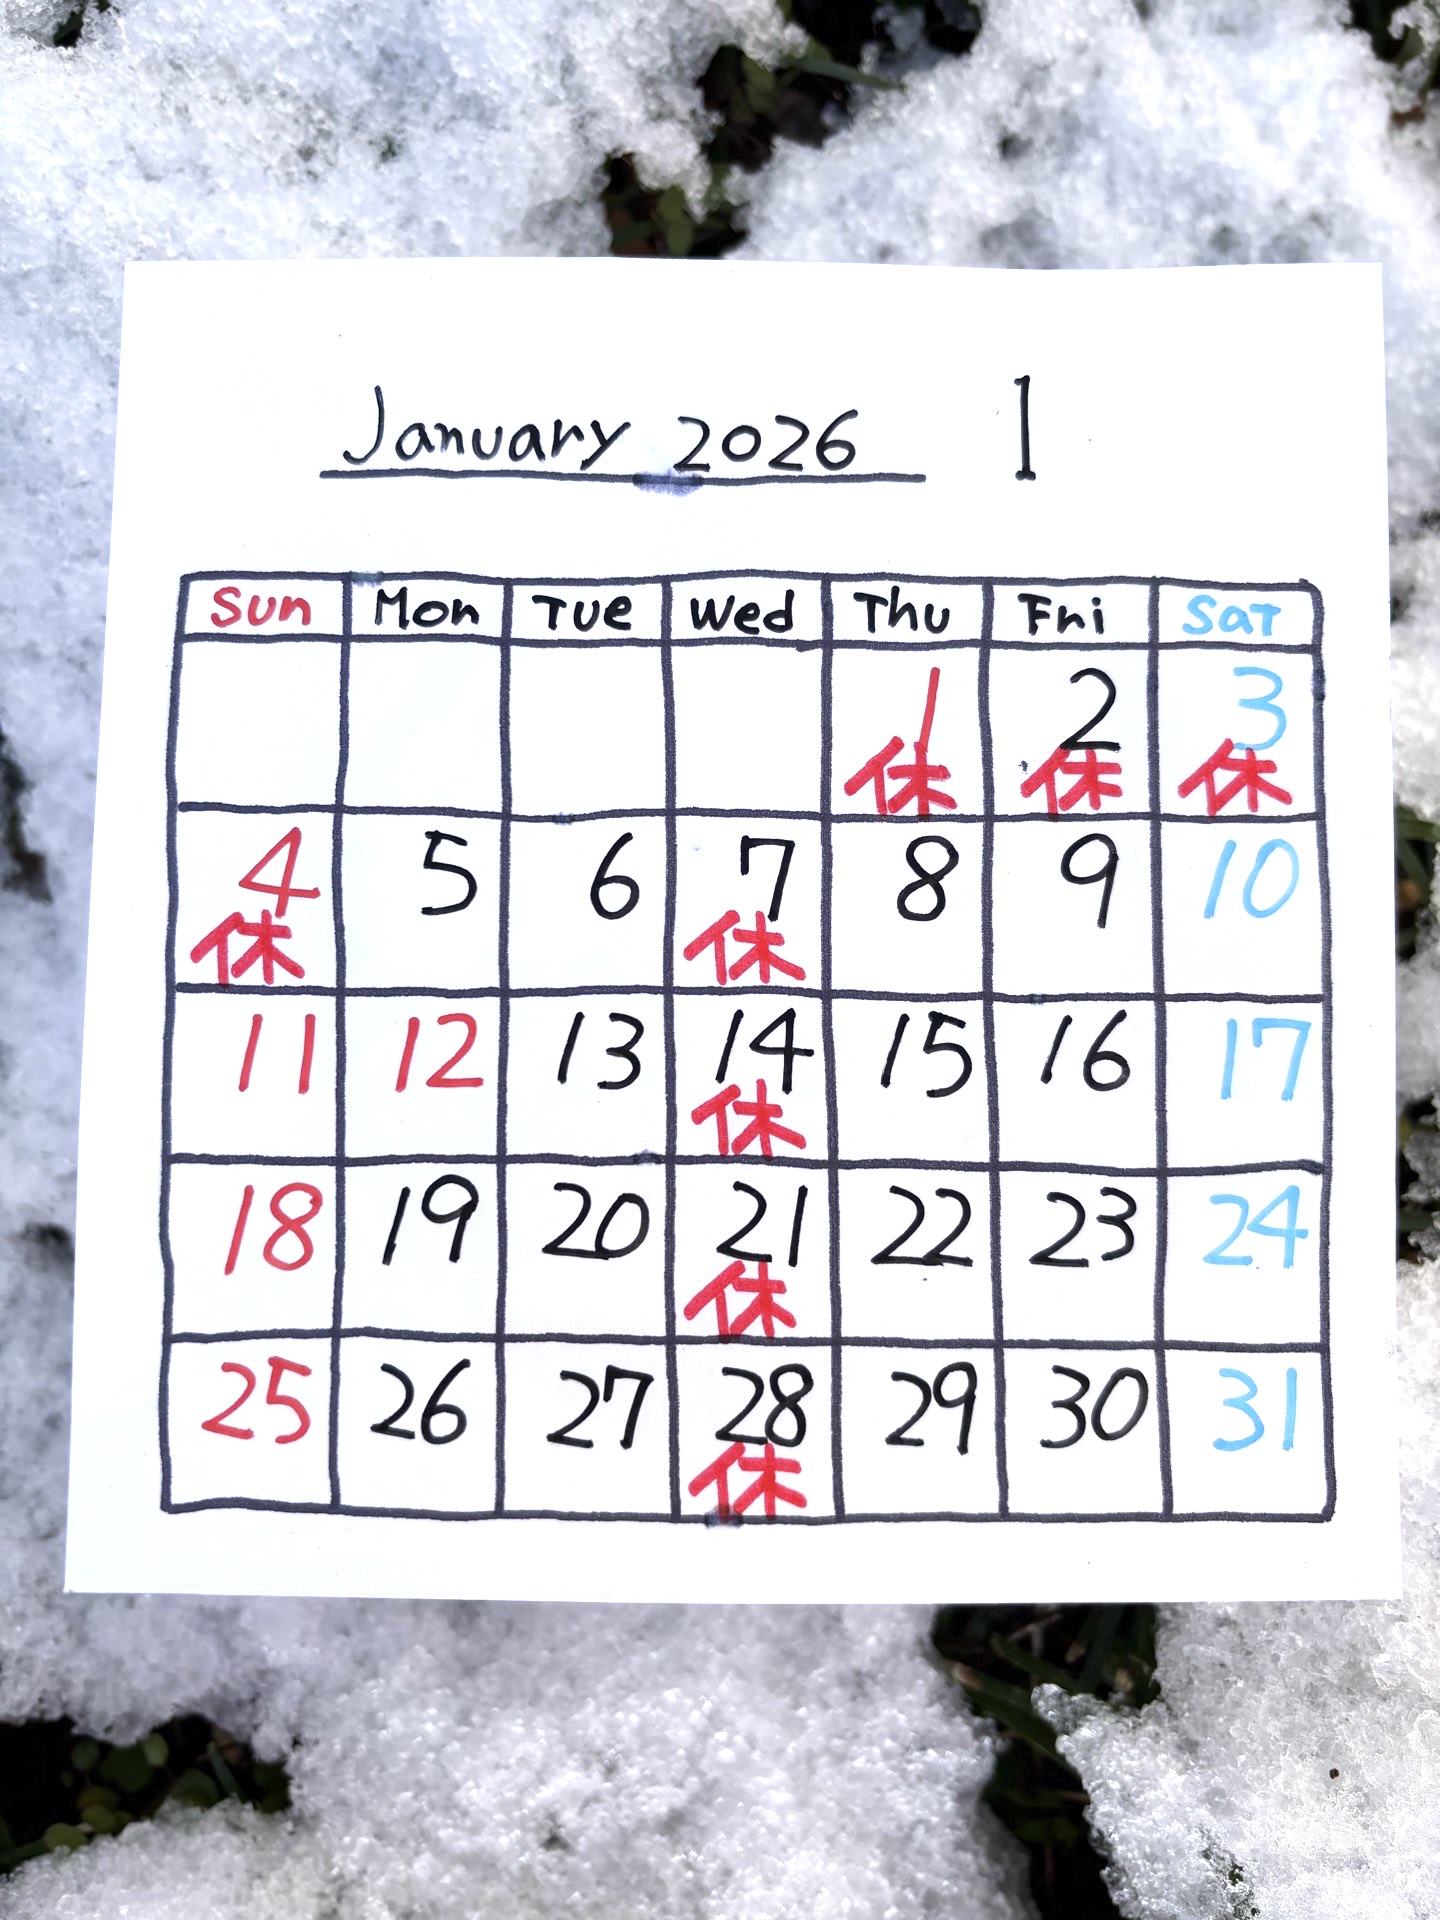 January 2026 1
Sun Mon Tue Wed Thu Fri Sat
1 2 3
休 休 休
4 5 6 7 8 9 10
休 休
11 12 13 14 15 16 17
休
18 19 20 21 22 23 24
休
25 26 27 28 29 30 31
休